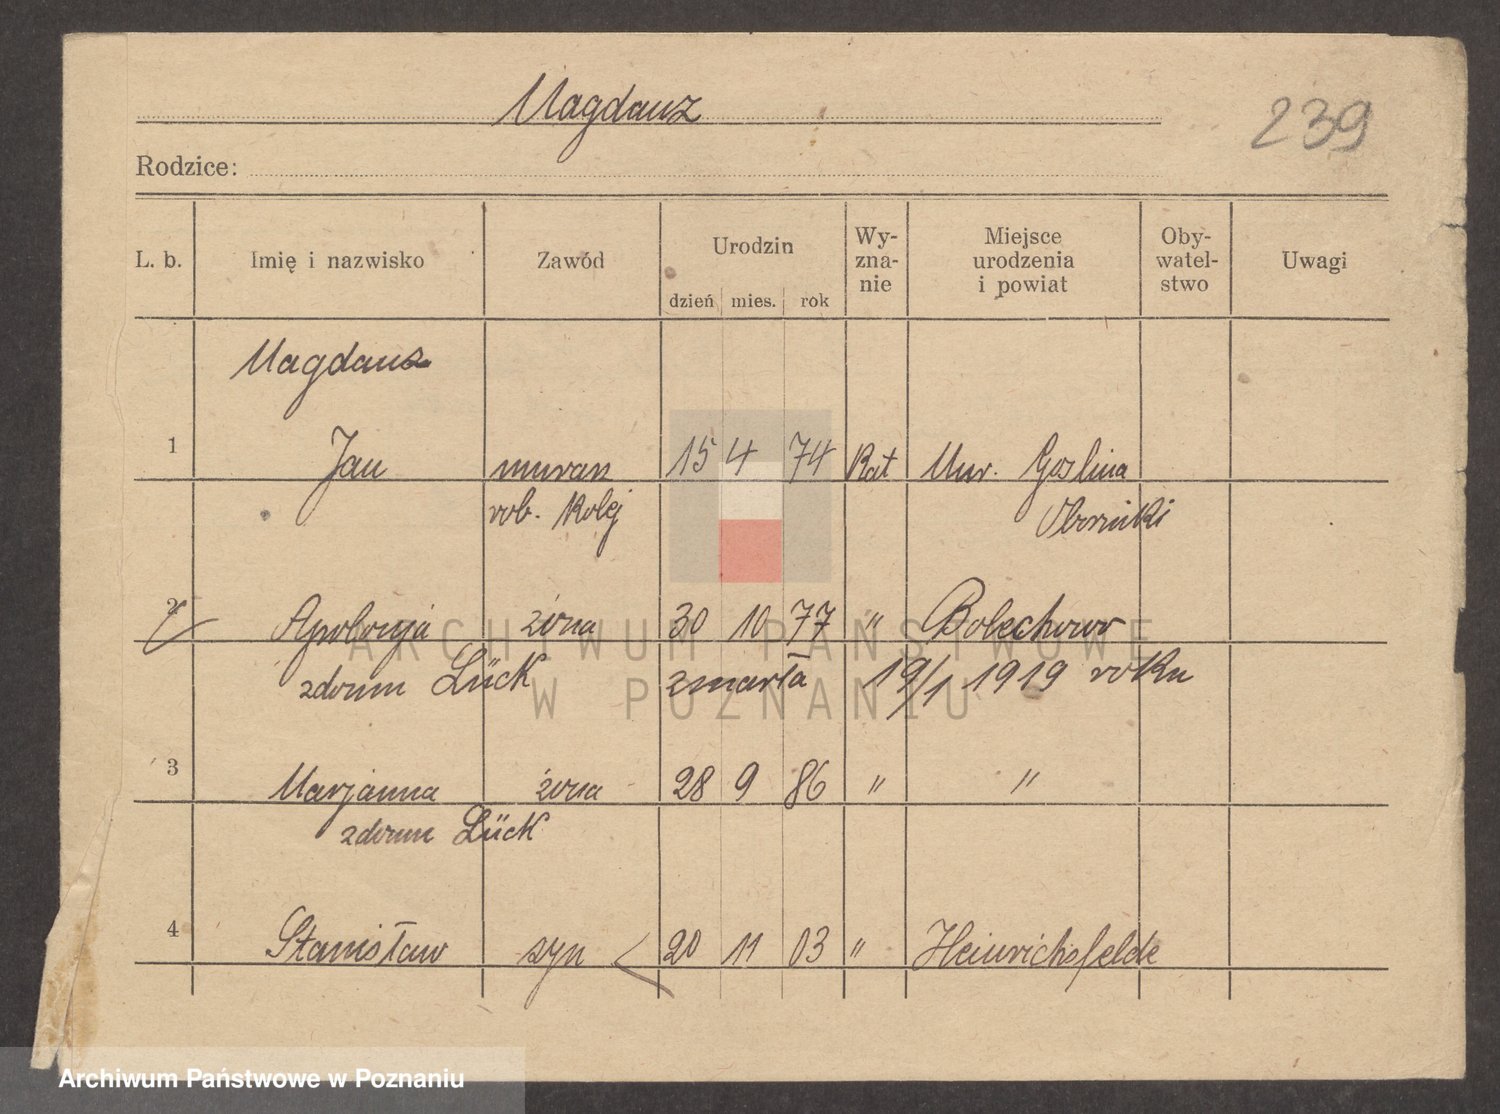 Magdanz
239
Rodzice:
L. b. Imię i nazwisko Zawód Urodzin dzień mies. rok Wy-zna-nie Miejsce urodzenia i powiat Oby-watel-stwo Uwagi
Magdanz
1 Jan murarz 15 4 74 Kat Mur. Goslina
rob. Kolej Oborniki
2 Apolonja żona 30 10 77 " Bolechowo
zdomu Lück zmarła 19/1 1919 roku
3 Marjanna żona 28 9 86 " "
zdomu Lück
4 Stanisław syn 20 11 03 " Heinrichsfelde
ARCHIWUM PAŃSTWOWE
W POZNANIU
Archiwum Państwowe w Poznaniu